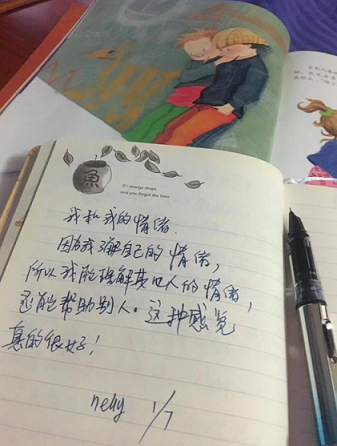 魚
If I change shape
and you forget the time
我和我的情绪.
因为我了解自己的情绪,
所以我能理解其他人的情绪,
还能帮助别人。这种感觉
真的很好!
nely 1/7